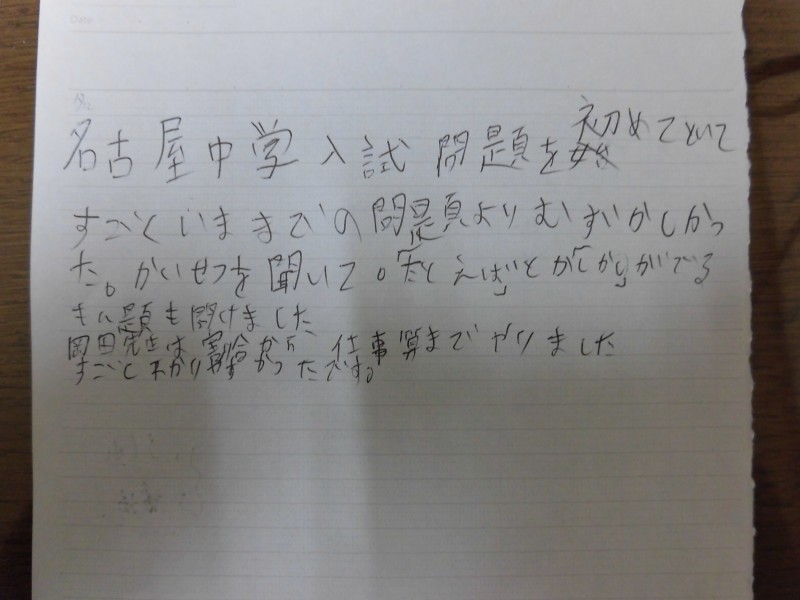 名古屋中学入試問題を初めてといて
すごくいままでの問題よりむずいかしかっ
た。かいせつを聞いて。「たとえば」とが「しかし」がでる
もん題も聞けました
岡田先生は割合から仕事算までやりました
すごくわかりやすかったです。